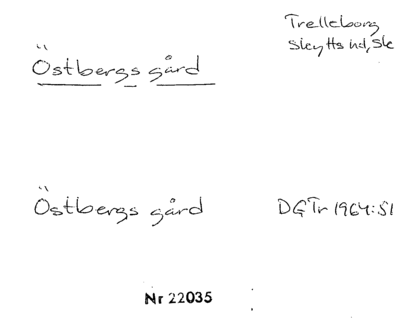 Östbergs gård
Trelleborg
Skytts hd, Sk
Östbergs gård
DGTr 1964:51
Nr 22035